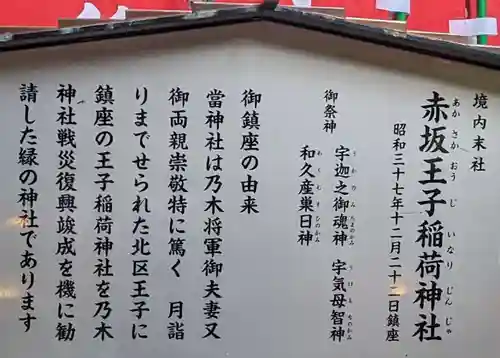 境内末社
赤坂王子稲荷神社
あかさかおうじいなりじんじゃ
昭和三十七年十二月二十二日鎮座
御祭神
宇迦之御魂神
うかのみたまのかみ
宇気母智神
うけもちのかみ
和久産巣日神
わくむすびのかみ
御鎮座の由来
當神社は乃木将軍御夫妻又
御両親崇敬特に篤く 月詣
りまでせられた北区王子に
鎮座の王子稲荷神社を乃木
神社戦災復興竣成を機に勧
請した縁の神社であります